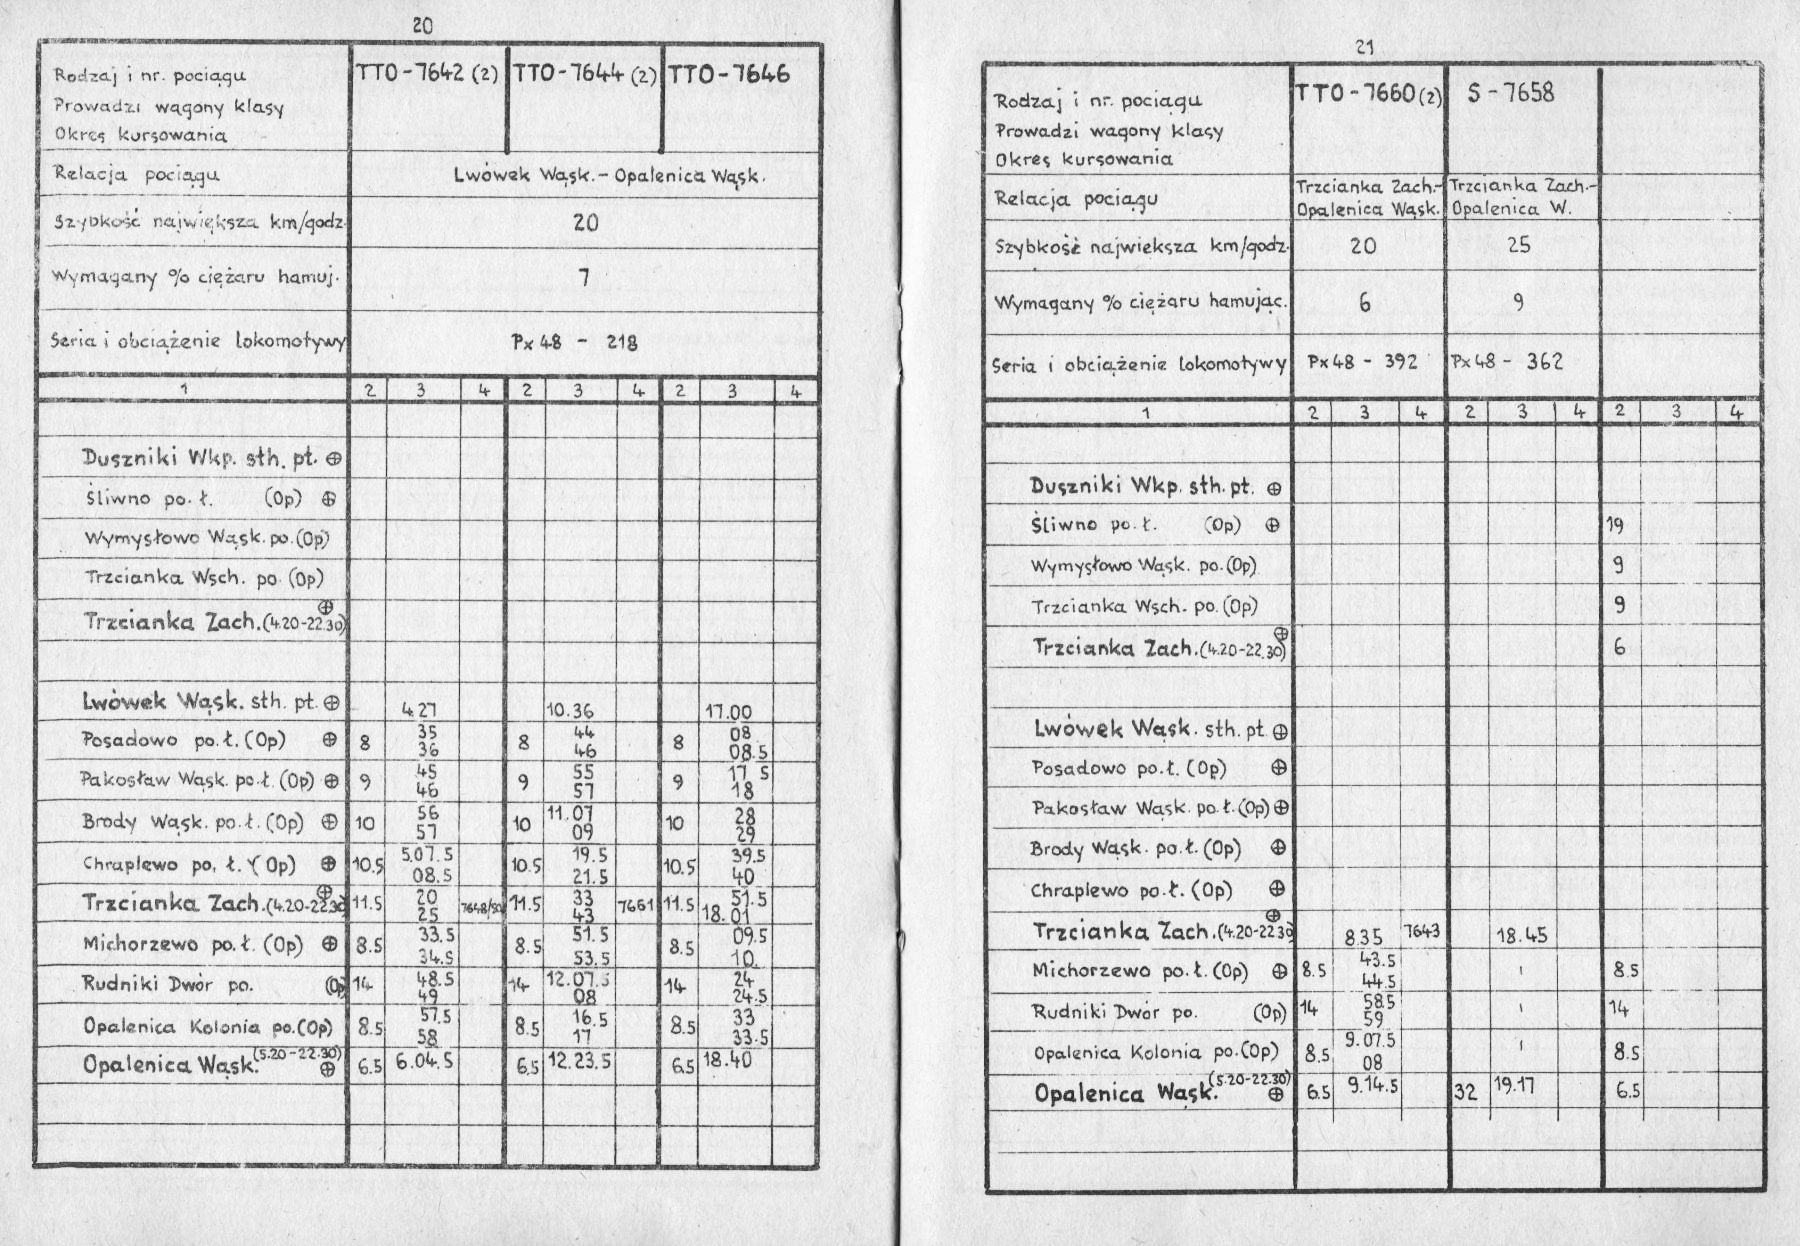 20
Rodzaj i nr. pociągu TTO-7642 (2) TTO-7644 (2) TTO-7646
Prowadzi wagony klasy
Okres kursowania
Relacja pociągu Lwówek Wąsk.- Opalenica Wąsk.
Szybkość największa km/godz. 20
Wymagany % ciężaru hamuj. 7
Seria i obciążenie lokomotywy Px48 - 218
1 2 3 4 2 3 4 2 3 4
Duszniki Wkp. sth. pt. ⊕
Śliwno po. ł. (Op) ⊕
Wymysłowo Wąsk. po. (Op)
Trzcianka Wsch. po (Op)
⊕
Trzcianka Zach. (4.20-22.30)
Lwówek Wąsk. sth. pt. ⊕ 4 27 10.36 17.00
35 44 08
Posadowo po.ł. (Op) ⊕ 8 8 8
36 46 08.5
45 55 17 5
Pakosław Wąsk. po.ł. (Op) ⊕ 9 9 9
46 57 18
56 11.07 28
Brody Wąsk. po.ł. (Op) ⊕ 10 10 10
57 09 29
5.07.5 19.5 39.5
Chraplewo po. ł. (Op) ⊕ 10.5 10.5 10.5
08.5 21.5 40
⊕ 20 33 51.5
Trzcianka Zach. (4.20-22.30) 11.5 7648/50 11.5 7661 11.5
25 43 18.01
33.5 51.5 09.5
Michorzewo po.ł. (Op) ⊕ 8.5 8.5 8.5
34.5 53.5 10
48.5 12.07.5 24
Rudniki Dwór po. (Op) 14 14 14
49 08 24.5
57.5 16.5 33
Opalenica Kolonia po. (Op) 8.5 8.5 8.5
58 17 33.5
(5.20-22.30)
Opalenica Wąsk. ⊕ 6.5 6.04.5 6.5 12.23.5 6.5 18.40
21
Rodzaj i nr. pociągu TTO-7660 (2) S-7658
Prowadzi wagony klasy
Okres kursowania
Trzcianka Zach.- Trzcianka Zach.-
Relacja pociągu
Opalenica Wąsk. Opalenica W.
Szybkość największa km/godz. 20 25
Wymagany % ciężaru hamując. 6 9
Seria i obciążenie lokomotywy Px48 - 392 Px48 - 362
1 2 3 4 2 3 4 2 3 4
Duszniki Wkp. sth. pt. ⊕
Śliwno po. ł. (Op) ⊕ 19
Wymysłowo Wąsk. po. (Op) 9
Trzcianka Wsch. po. (Op) 9
⊕
Trzcianka Zach. (4.20-22.30) 6
Lwówek Wąsk. sth. pt ⊕
Posadowo po.ł. (Op) ⊕
Pakosław Wąsk. po.ł. (Op) ⊕
Brody Wąsk. po.ł. (Op) ⊕
Chraplewo po.ł. (Op) ⊕
⊕
Trzcianka Zach. (4.20-22.30) 8.35 7643 18.45
43.5
Michorzewo po.ł. (Op) ⊕ 8.5 ı 8.5
44.5
58.5
Rudniki Dwór po. (Op) 14 ı 14
59
9.07.5
Opalenica Kolonia po. (Op) 8.5 ı 8.5
08
(5.20-22.30)
Opalenica Wąsk. ⊕ 6.5 9.14.5 32 19.17 6.5